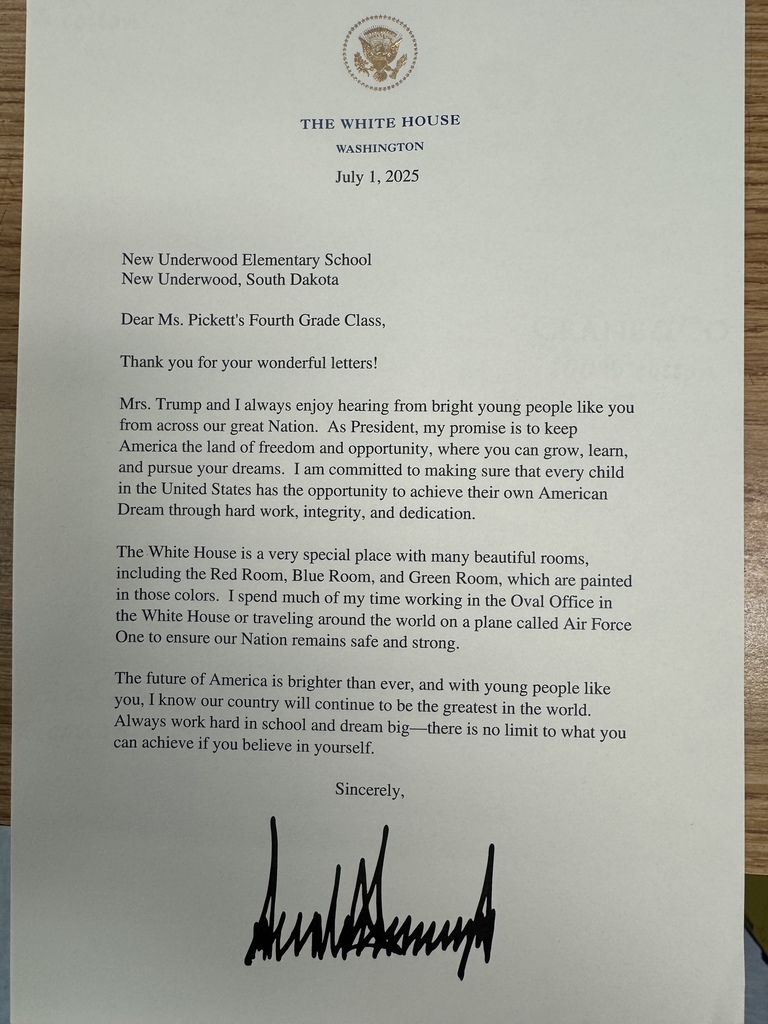 THE WHITE HOUSE
WASHINGTON
July 1, 2025
New Underwood Elementary School
New Underwood, South Dakota
Dear Ms. Pickett's Fourth Grade Class,
Thank you for your wonderful letters!
Mrs. Trump and I always enjoy hearing from bright young people like you
from across our great Nation.  As President, my promise is to keep
America the land of freedom and opportunity, where you can grow, learn,
and pursue your dreams.  I am committed to making sure that every child
in the United States has the opportunity to achieve their own American
Dream through hard work, integrity, and dedication.
The White House is a very special place with many beautiful rooms,
including the Red Room, Blue Room, and Green Room, which are painted
in those colors.  I spend much of my time working in the Oval Office in
the White House or traveling around the world on a plane called Air Force
One to ensure our Nation remains safe and strong.
The future of America is brighter than ever, and with young people like
you, I know our country will continue to be the greatest in the world.
Always work hard in school and dream big—there is no limit to what you
can achieve if you believe in yourself.
Sincerely,